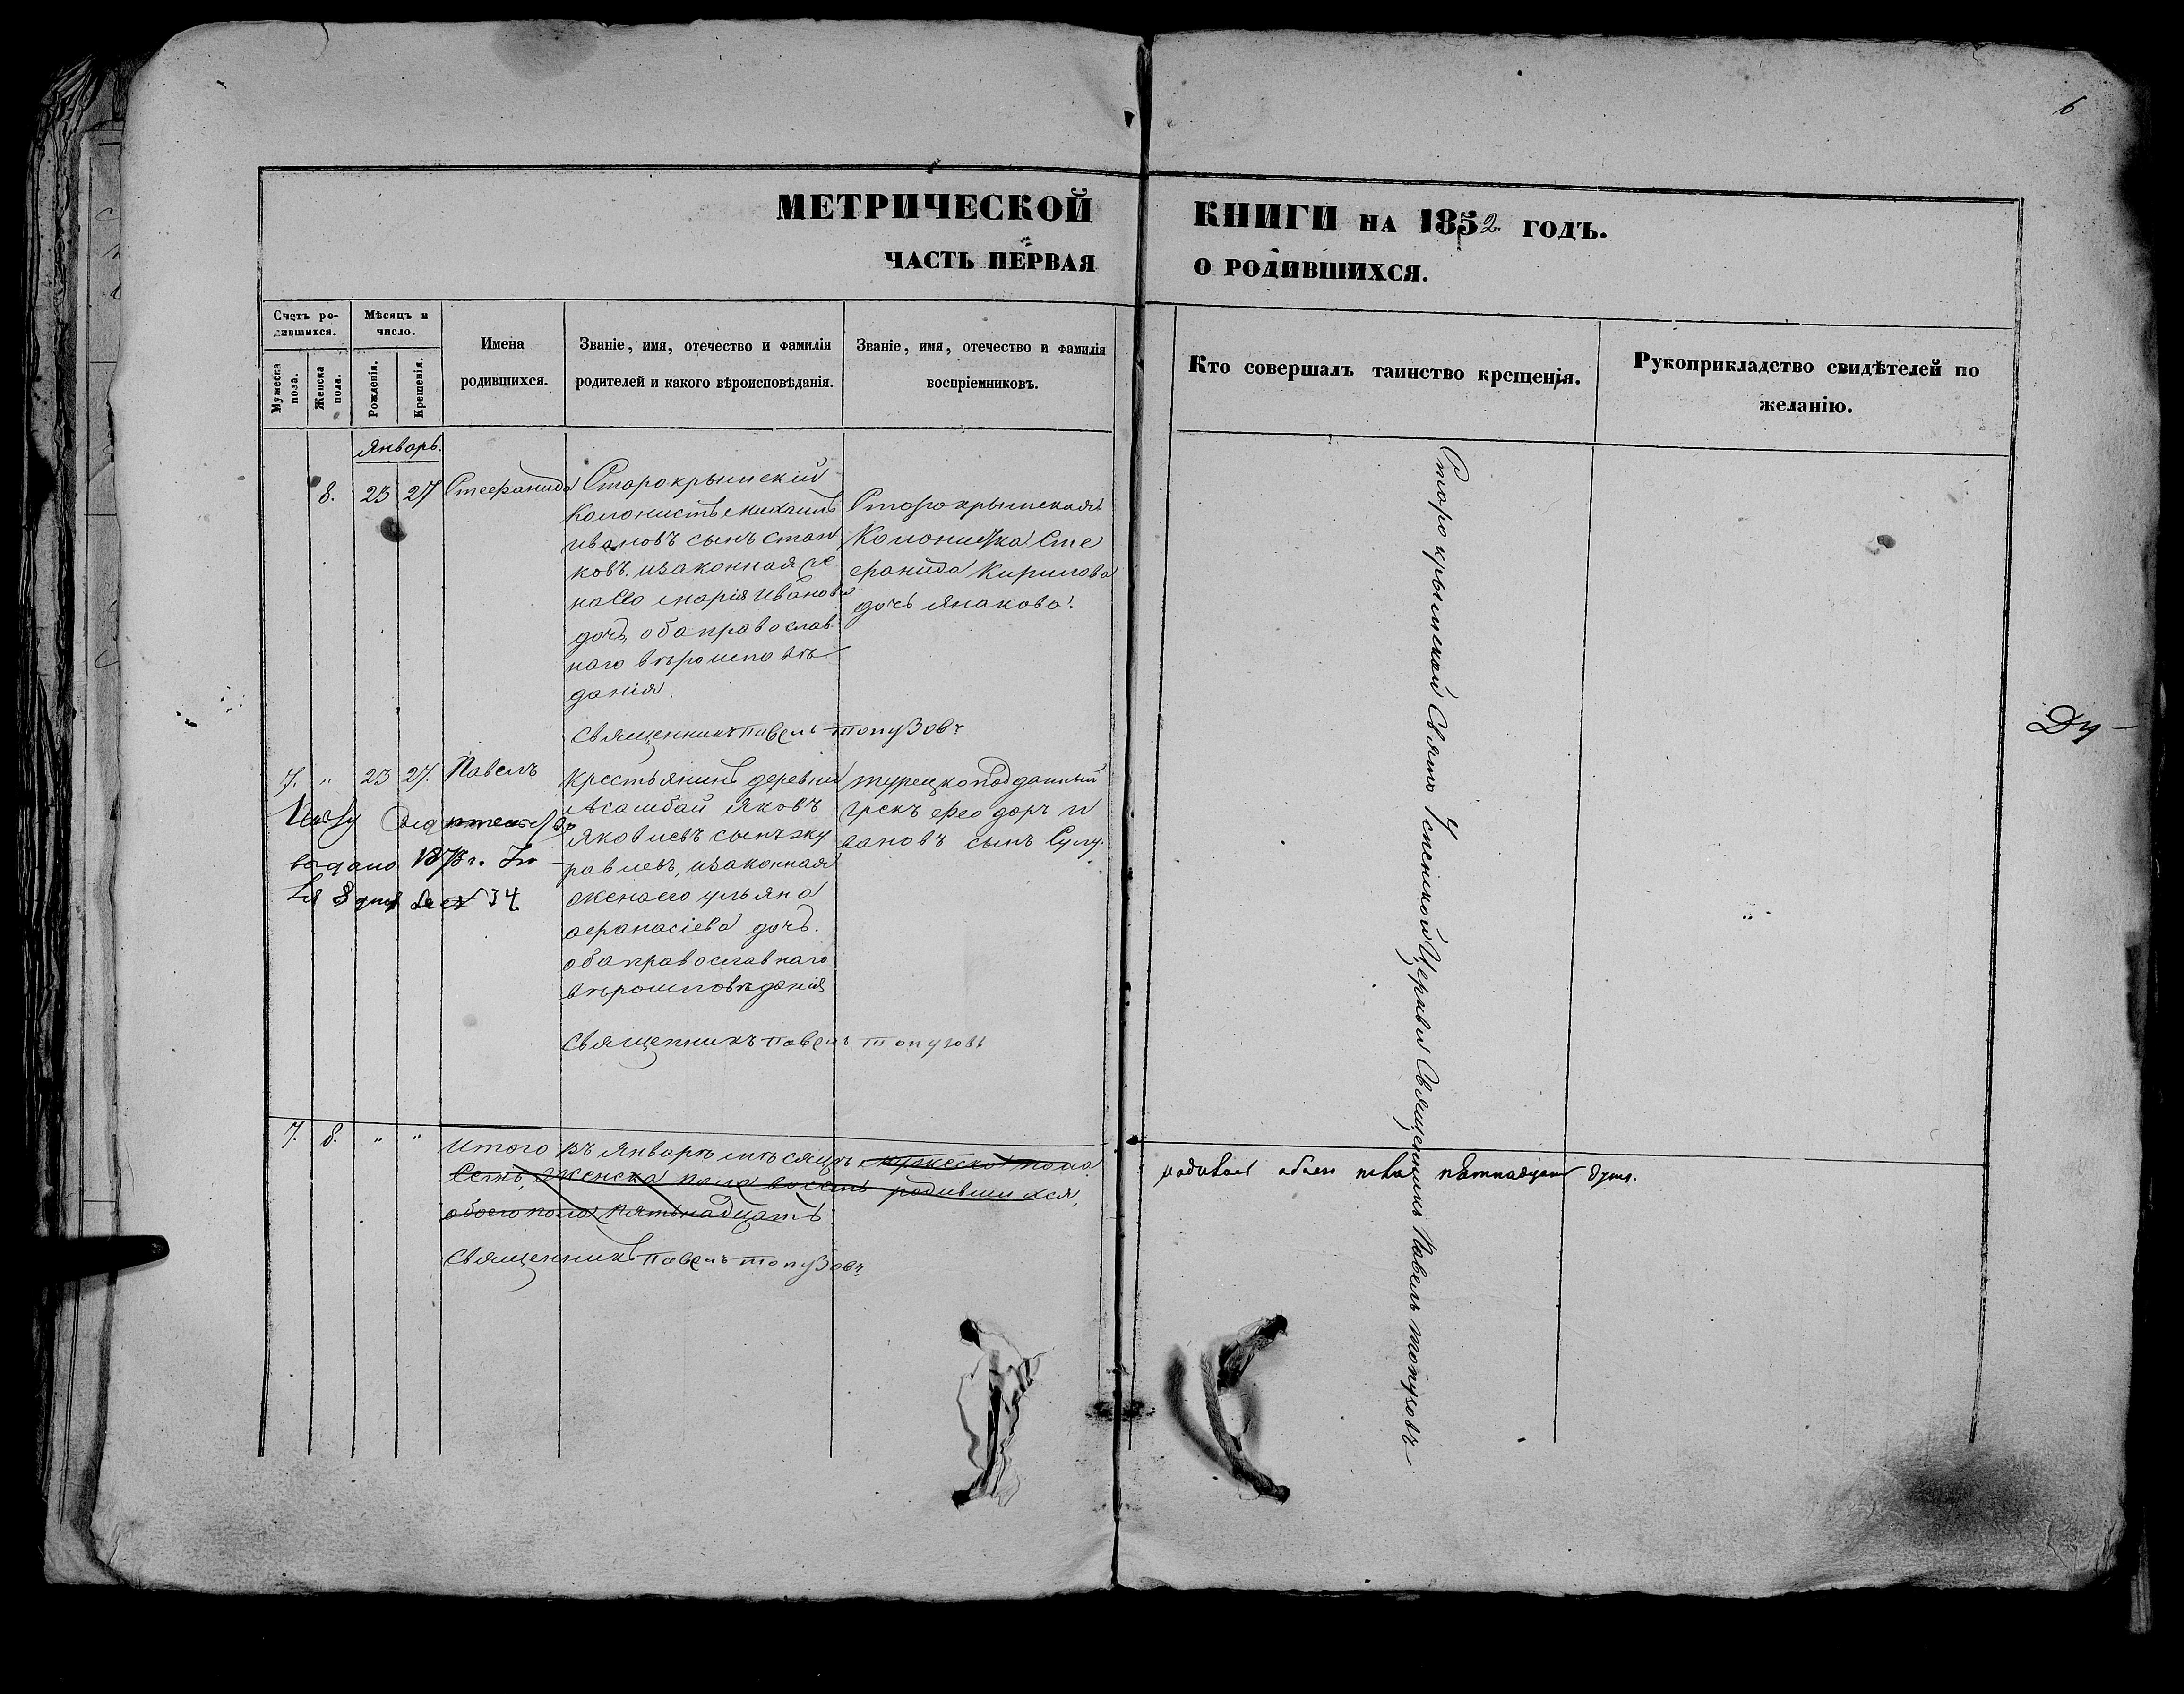 6
МЕТРИЧЕСКОЙ КНИГИ НА 1852 ГОДЪ.
ЧАСТЬ ПЕРВАЯ О РОДИВШИХСЯ.
Счетъ ро-
дившихся.
Мужеска
пола.
Женска
пола.
Мѣсяцъ и
число.
Рожденія.
Крещенія.
Имена
родившихся.
Званіе, имя, отечество и фамилія
родителей и какого вѣроисповѣданія.
Званіе, имя, отечество и фамилія
воспріемниковъ.
Кто совершалъ таинство крещенія.
Рукоприкладство свидѣтелей по
желанію.
Январь.
8. 23 27 Стефанида
Старокрымскій
Колонистъ Михаилъ
Ивановъ сынъ Стан
ковъ. изаконная же
на его Марія Иванова
дочь, оба православ
наго вѣроисповѣ
данія.
Старокрымская
Колонистка Сте
фанида Кирилова
дочь Янакова.
Священникъ Павелъ Топузовъ
7. " 23 27. Павелъ
Крестьянинъ деревни
Яковъ
Яковлевъ сынъ
изаконная
жена его Ульяна
Афанасіева дочь.
оба православнаго
вѣроисповѣданія
турецкоподданный
грекъ Феодоръ И
вановъ сынъ
выдано
34.
Священникъ Павелъ Топузовъ
7. 8. " "
Итого въ Январѣ мѣсяцѣ мужеска пола
Семь, Женска пола восемь родившихся,
обоего пола пятьнадцать
обоего пола пятнадцать душъ.
Священникъ Павелъ Топузовъ
Старокрымской Свято Успенской Церкви Священникъ Павелъ Топузовъ